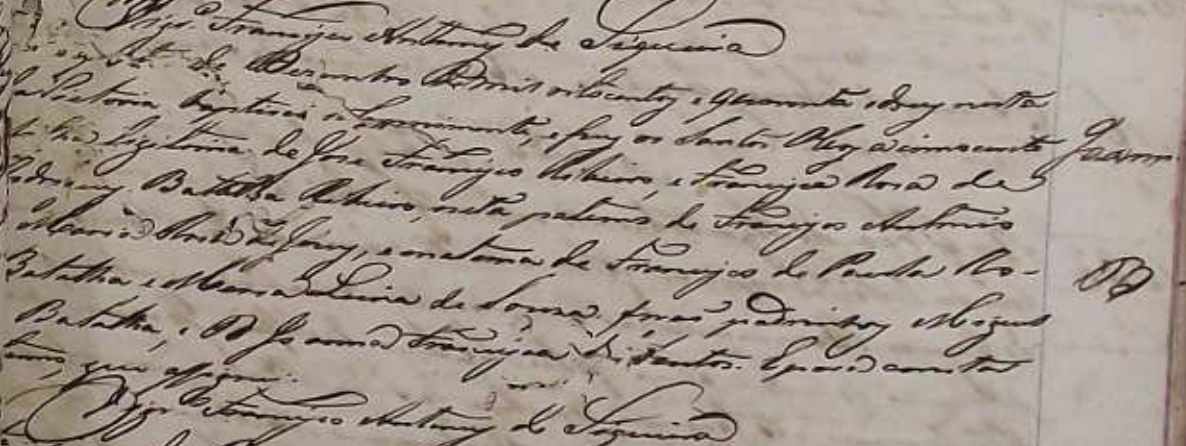 Vigr.º Francisco Antunes de Siqueira
de Dezembro de mil oitocentos e quarenta e dous nesta
da Victoria baptisei solemnemente, e puz os Santos Oleos a innocente
filha legitima de Jose Francisco Ribeiro, e Francisca Rosa de
Rodrigues Batalha Ribeiro, neta paterna de Francisco Antonio
Maria Rosa de Jesus, e materna de Francisco de Paula Ro-
Batalha e Maria Luiza de Souza forão padrinhos Miguel
Batalha, e D. Joanna Francisca dos Santos. E para constar
termo, que assignei.
Vigr.º Francisco Antunes de Siqueira
Joanna